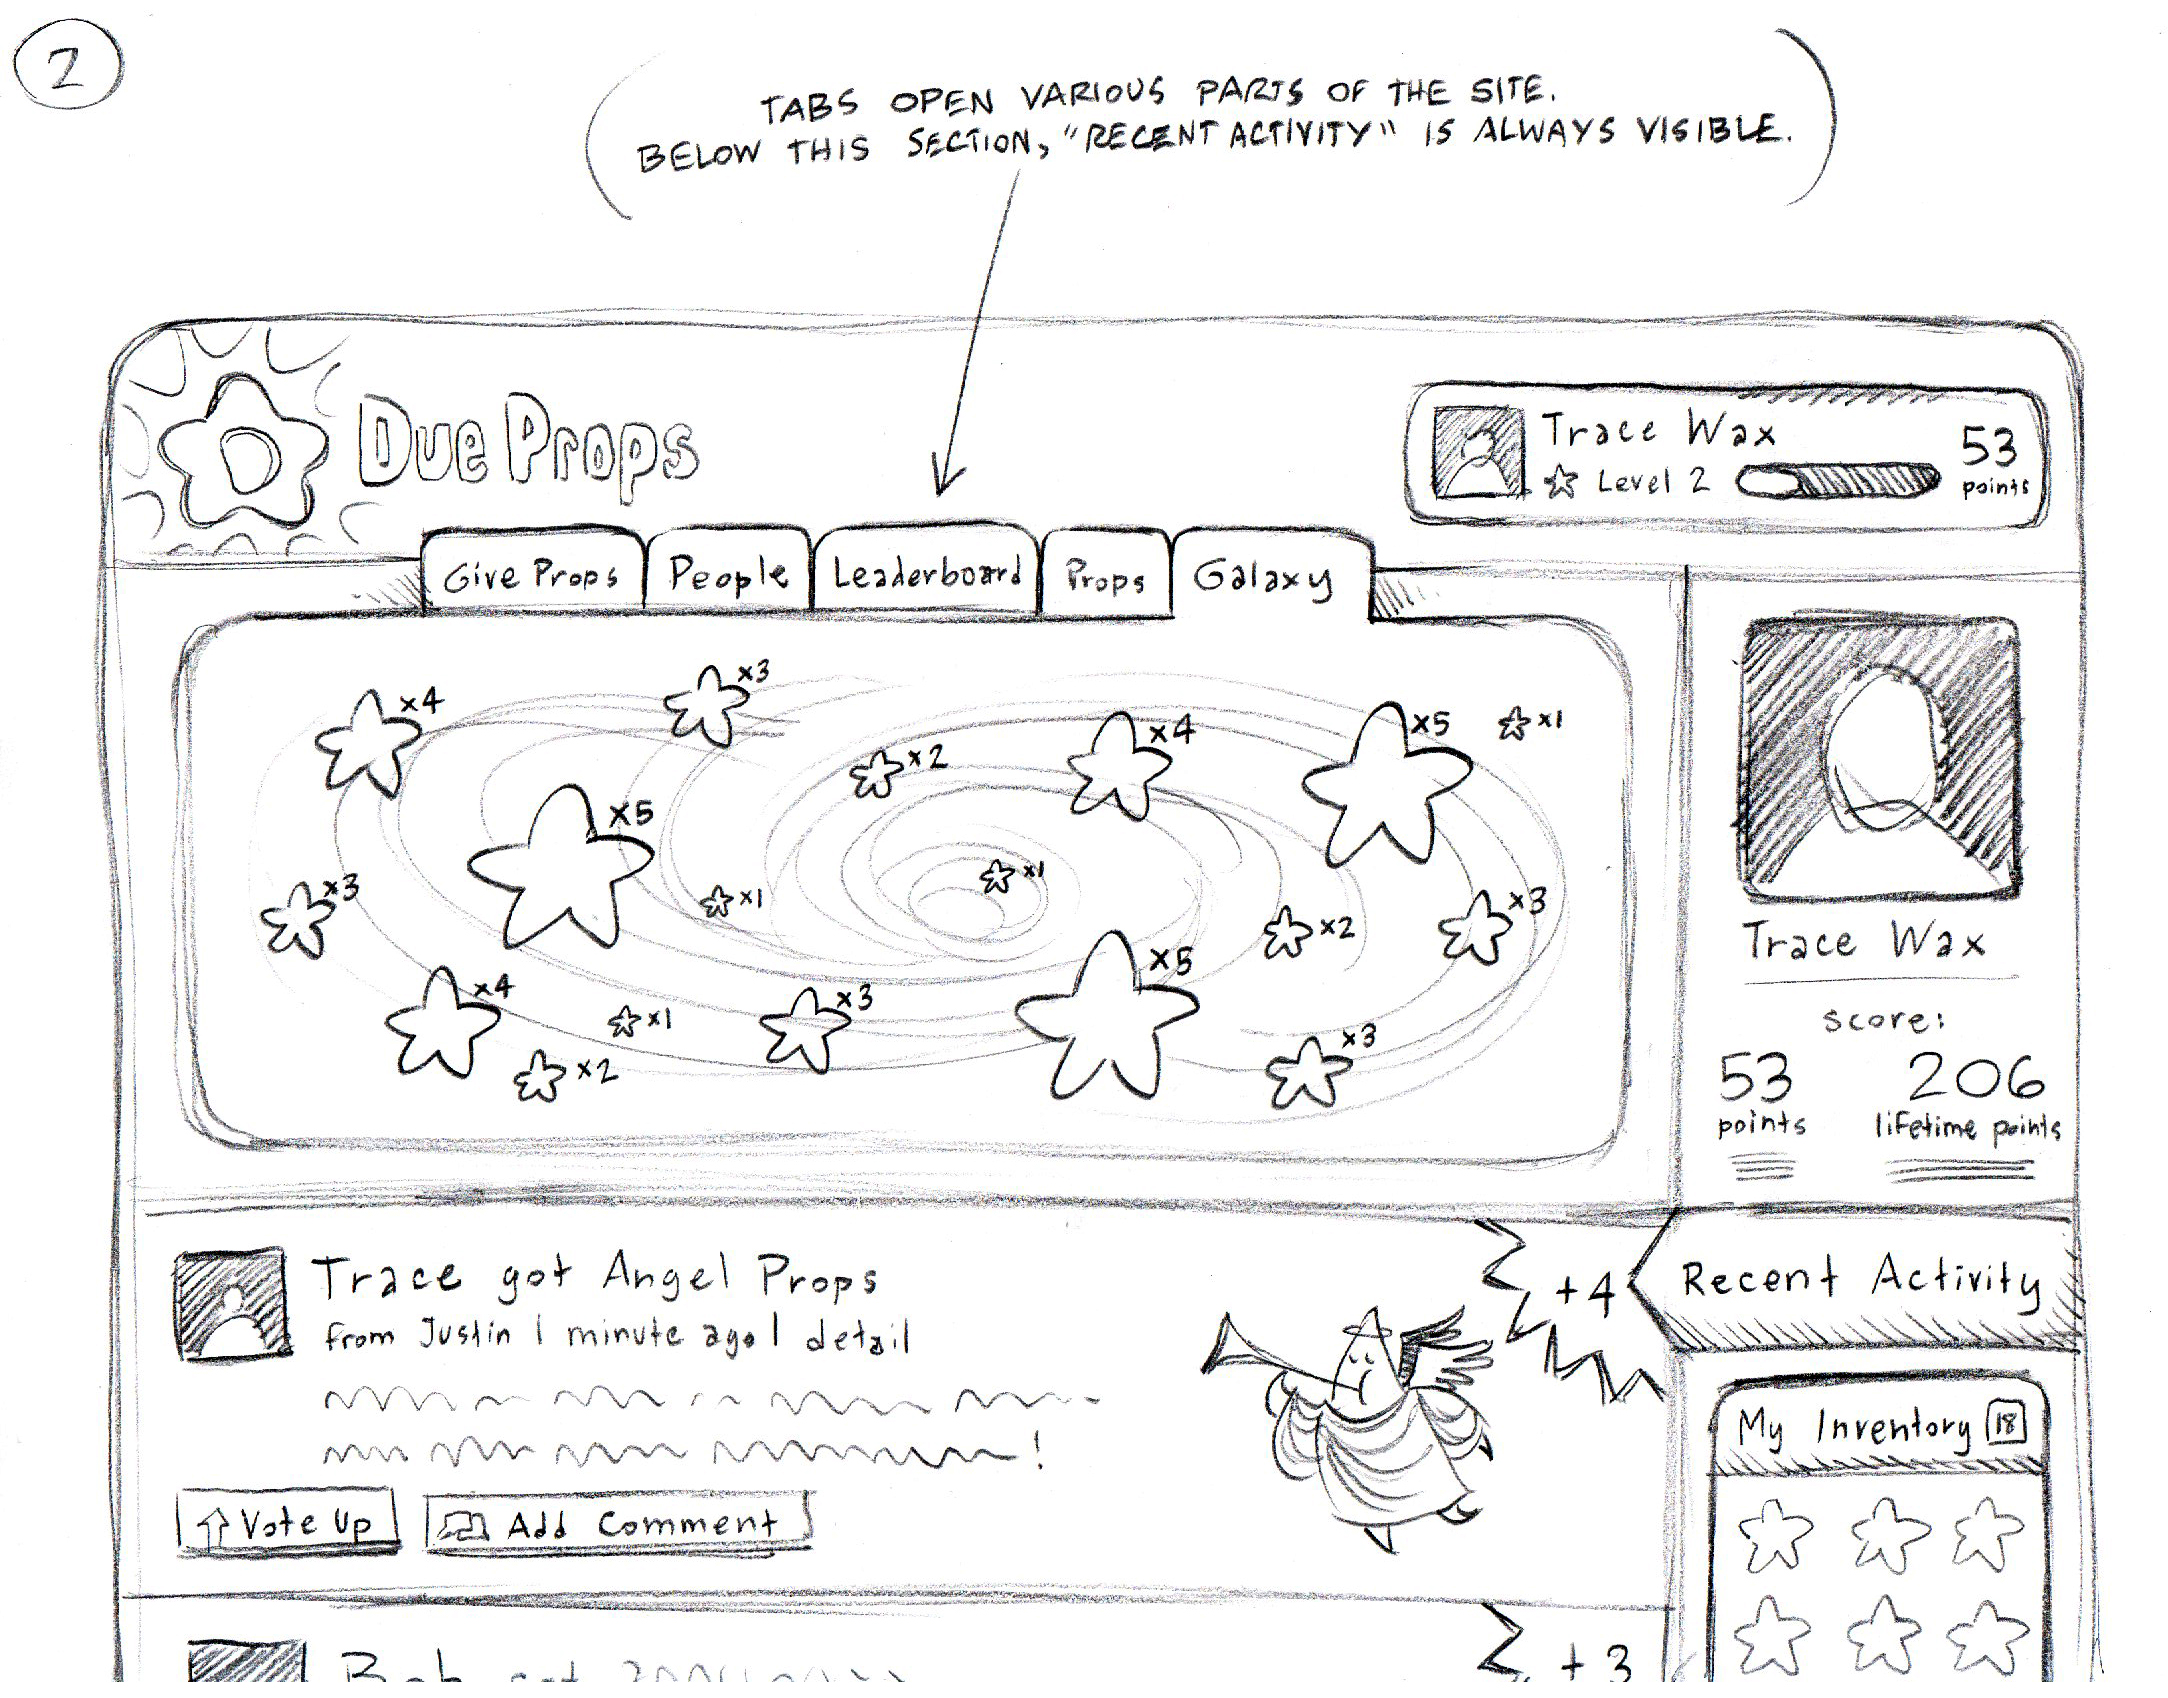 2
TABS OPEN VARIOUS PARTS OF THE SITE.
BELOW THIS SECTION, "RECENT ACTIVITY" IS ALWAYS VISIBLE.
Due Props
Trace Wax
Level 2
53
points
Give Props
People
Leaderboard
Props
Galaxy
x4
x3
x2
x4
x5
x1
x5
x3
x1
x1
x2
x3
x4
x1
x2
x3
x5
x3
Trace Wax
score:
53
points
206
lifetime points
Trace got Angel Props
from Justin | minute ago | detail
!
Vote Up
Add Comment
+4
Recent Activity
My Inventory 18
Bob got
+3